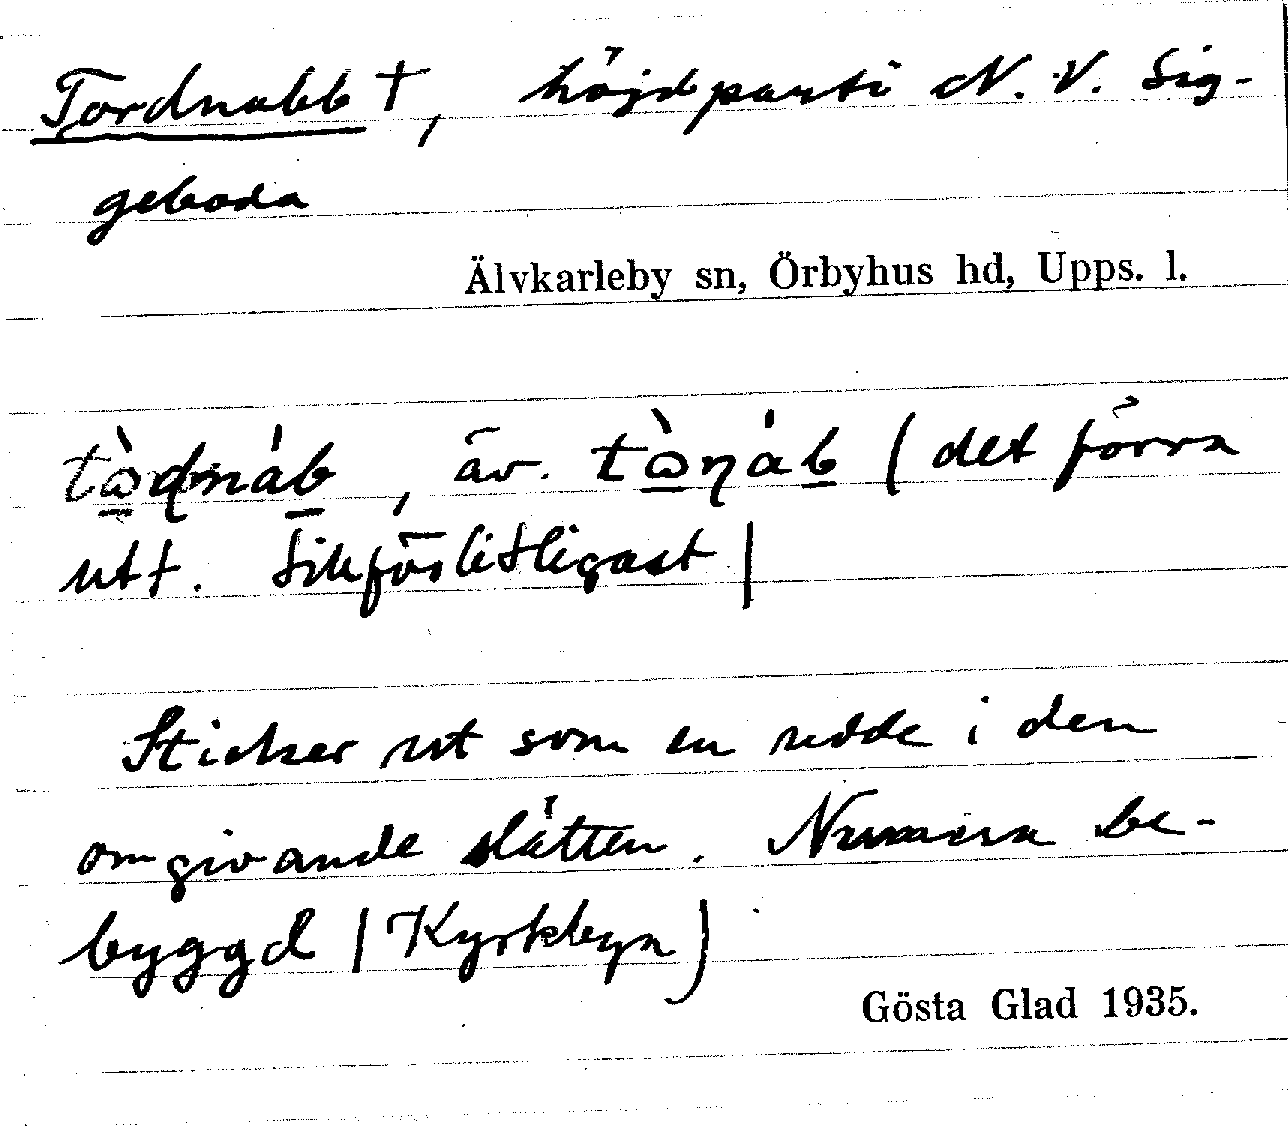 Tordnabb †, höjdparti N.V. Sig-
geboda
Älvkarleby sn, Örbyhus hd, Upps. l.
tɷ̀ɖnáb, äv. tɷ̀ɳáb (det förra
utt. tillförlitligast)
Sticker ut som en udde i den
omgivande slätten. Numera be-
byggd (Kyrkbyn)
Gösta Glad 1935.